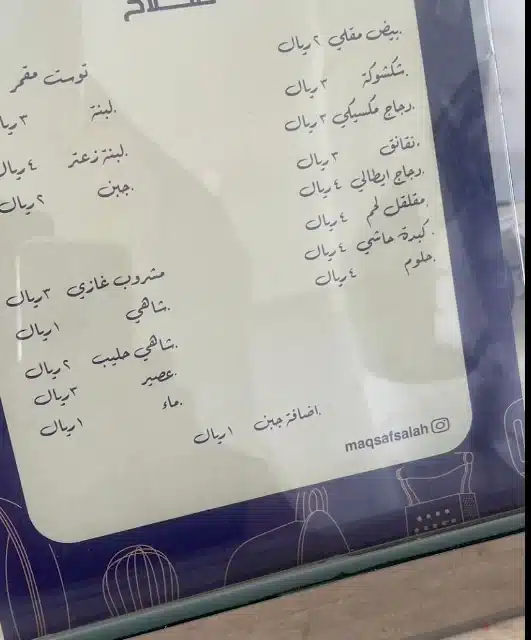 .بيض مقلي ٢ريال
.شكشوكة ٣ريال
.دجاج مكسيكي ٣ريال
.نقانق ٣ريال
.دجاج ايطالي ٤ريال
.مقلقل لحم ٤ريال
.كبدة حاشي ٤ريال
.حلوم ٤ريال
توست مقمر
.لبنة ٣ريال
.لبنة زعتر ٤ريال
.جبن ٢ريال
مشروب غازي ٣ريال
.شاهي ١ريال
.شاهي حليب ٢ريال
.عصير ٣ريال
.ماء ١ريال
.اضافة جبن ١ريال
maqsafsalah